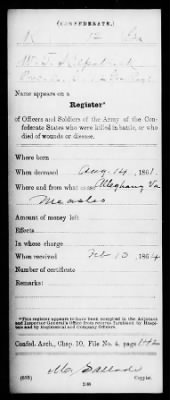 (CONFEDERATE.)
K 12 Ga
W. J. Kilpatrick
Name appears on a
Register*
of Officers and Soldiers of the Army of the Con-
federate States who were killed in battle, or who
died of wounds or disease.
Where born
When deceased Aug. 14, 1861.
Where and from what cause Alleghany Va
Measles
Amount of money left
Effects
In whose charge
When received Feb 13, 1864
Number of certificate
Remarks:
*This register appears to have been compiled in the Adjutant
and Inspector General's office from returns furnished by Hospi-
tals and by Regimental and Company Officers.
Confed. Arch., Chap. 10, File No. 4, page 142
(635)
Copyist.